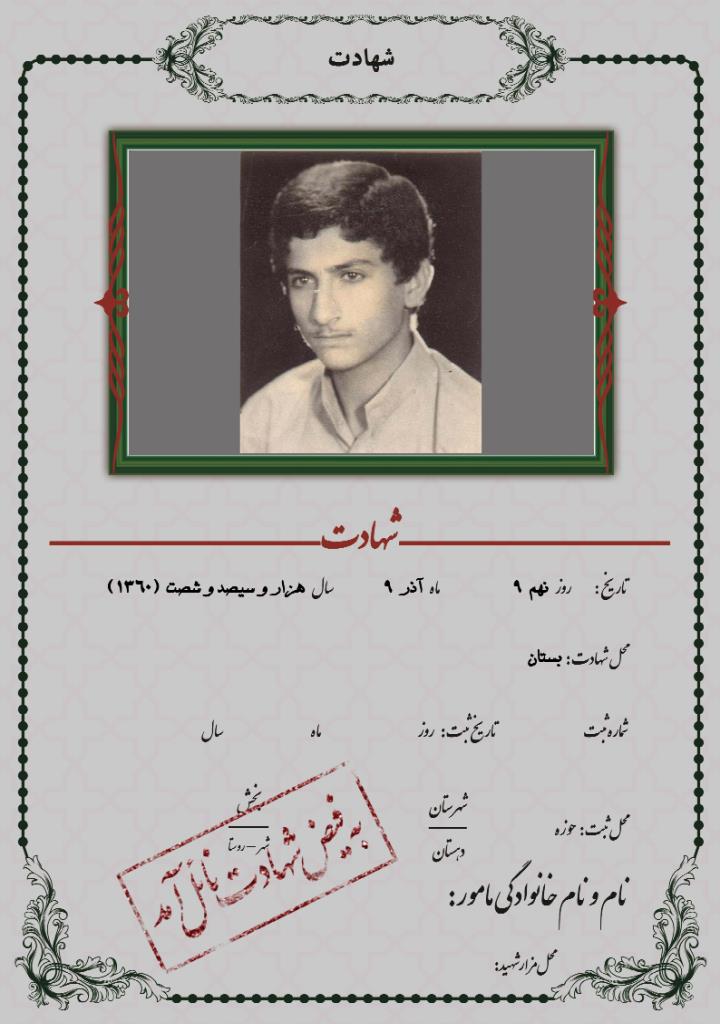 شهادت
شهادت
تاریخ: روز نهم ۹ ماه آذر ۹ سال هزار و سیصد و شصت (۱۳۶۰)
محل شهادت: بستان
شماره ثبت تاریخ ثبت: روز ماه سال
محل ثبت: حوزه شهرستان بخش
دهستان شهر - روستا
به فیض شهادت نائل آمد
نام و نام خانوادگی مامور:
محل مزار شهید: